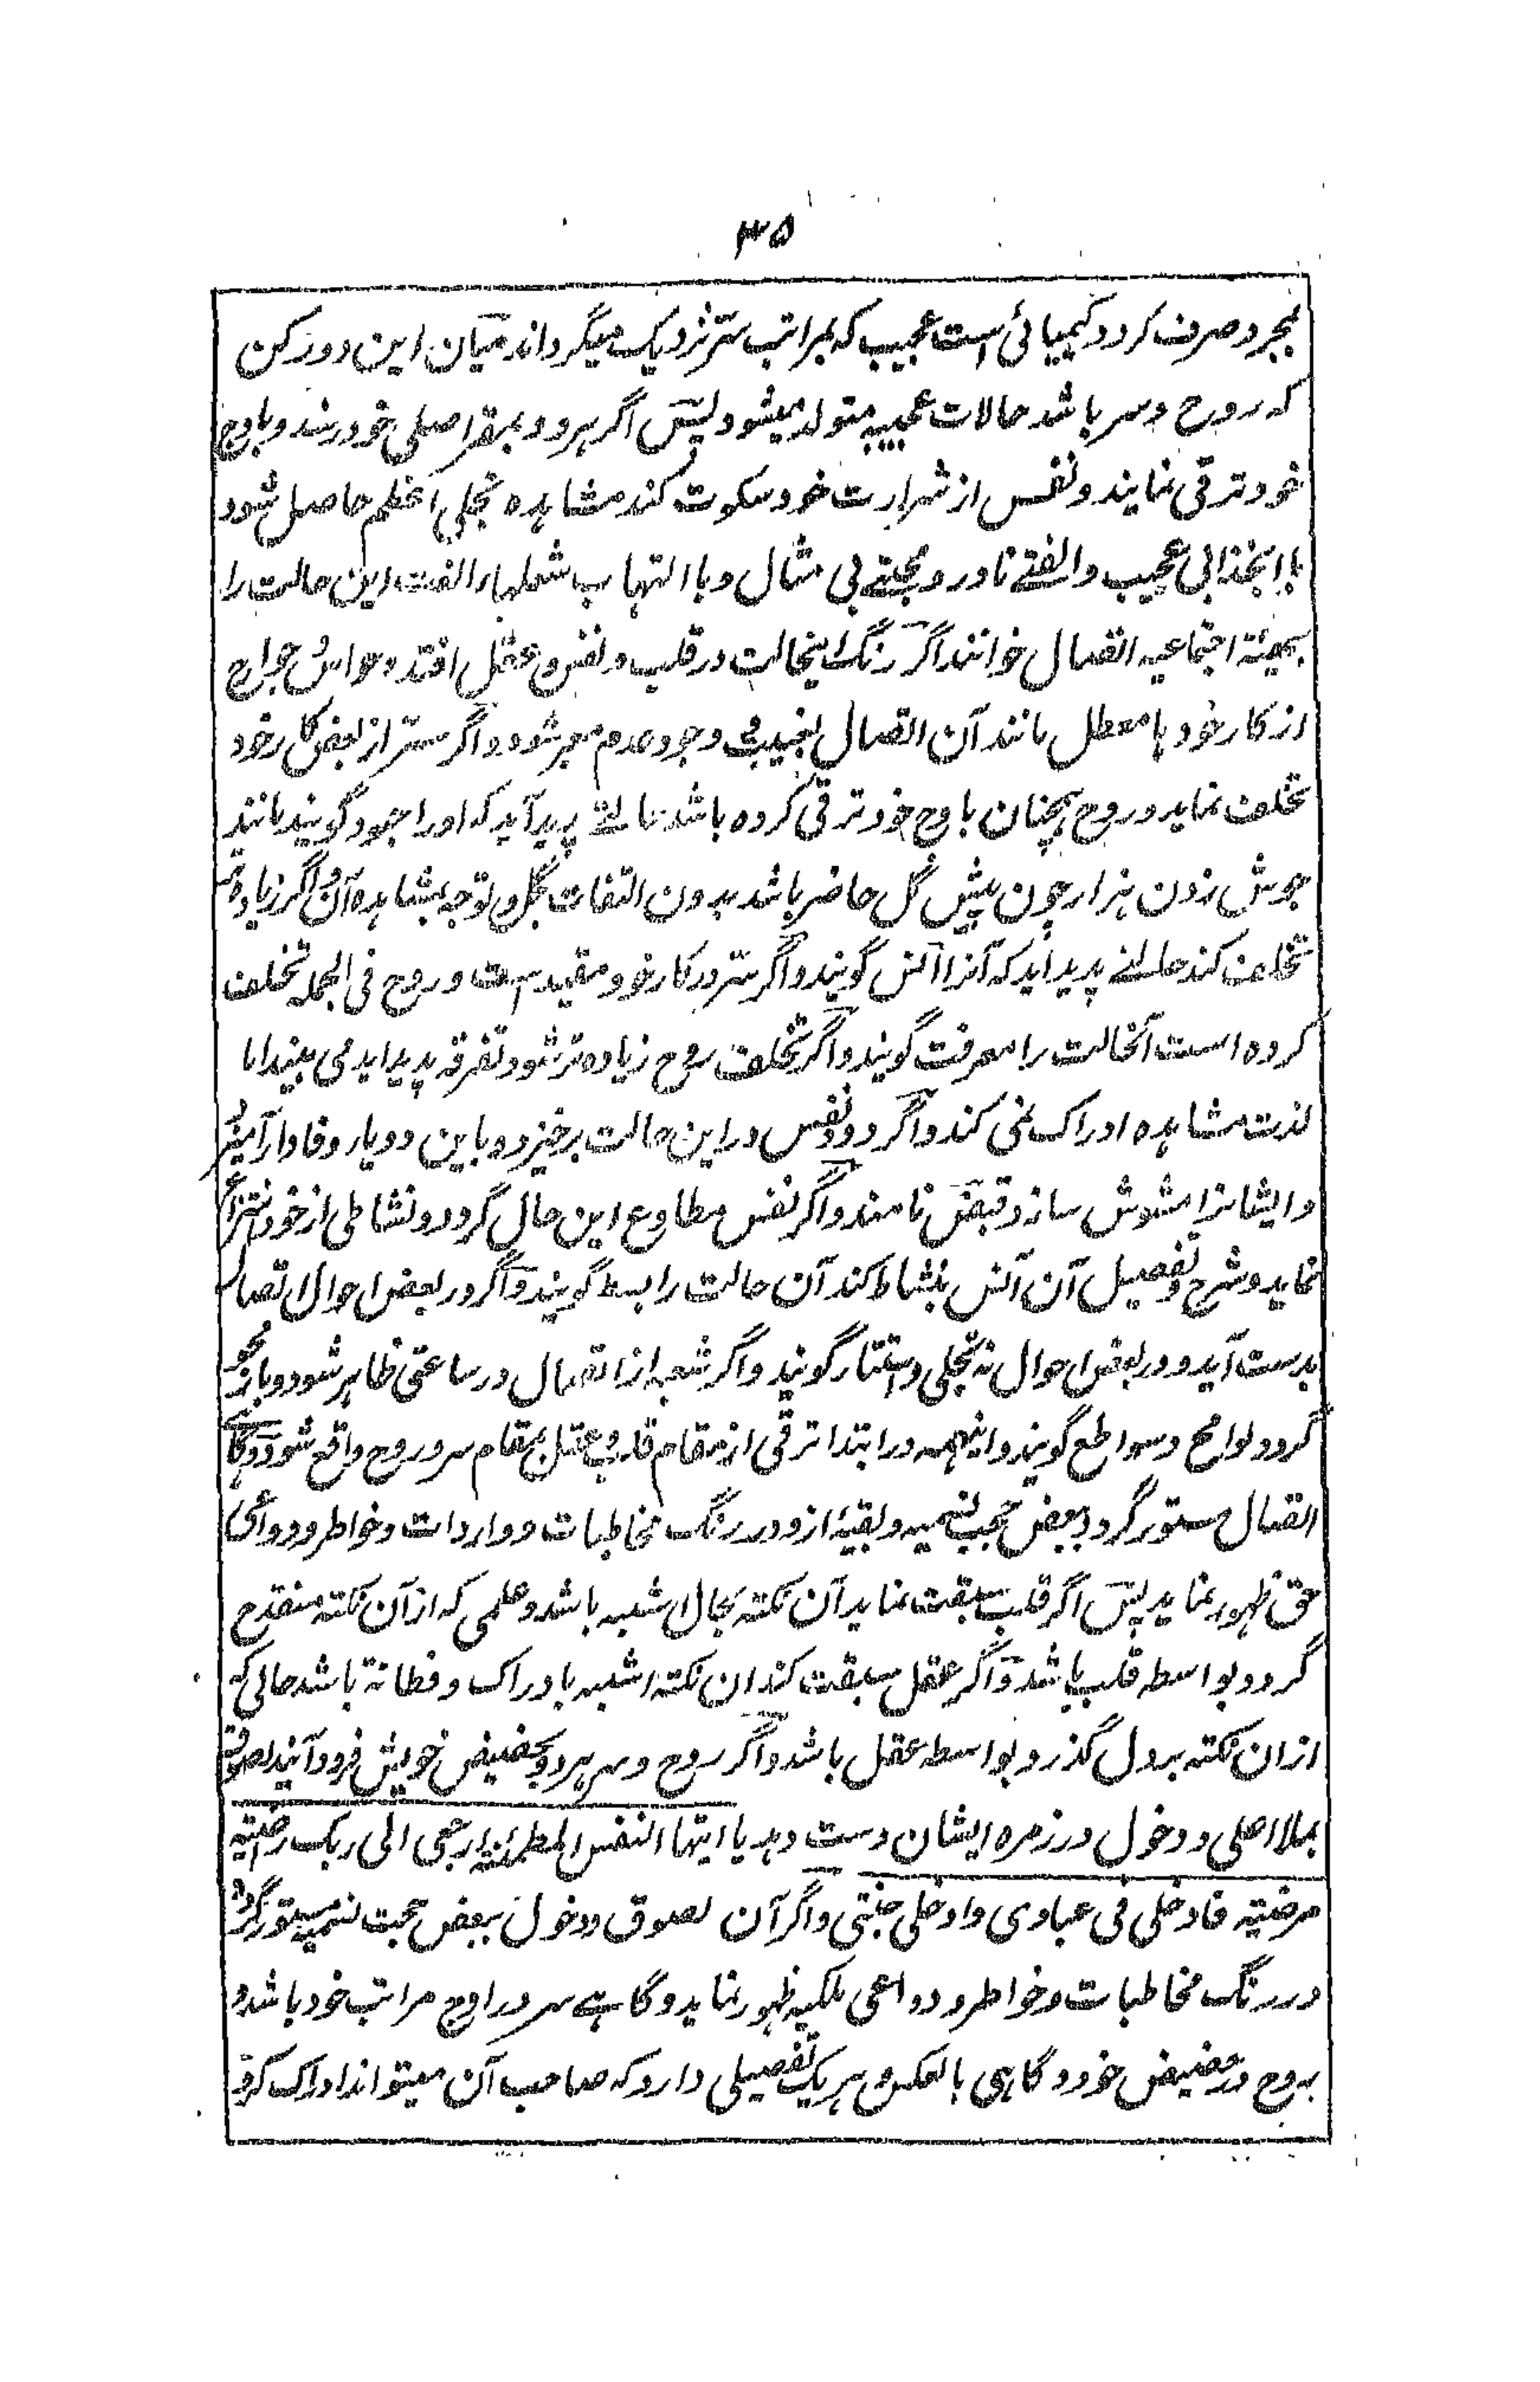 ۳۵
بمجرد صرف گردد کیمیائی است عجیب که بمراتب سر نزدیک میگرداند میان این دو رکن
که روح و سر باشد حالات عجیبه متولد میشود پس اگر هر دو بمقر اصلی خود رسند و باوج
خود ترقی نمایند و نفس از شرارت خود سکوت کند مشاهده تجلی اعظم حاصل شود
با انجذابی عجیب و الفتے نادر و محبتے بی مثال و با التهاب شعلهاء الفت این حالت را
بهیئة اجتماعیه اتصال خوانند اگر رنگ اینحالت در قلب و نفس و عقل افتد و حواس و جوارح
از کار خود ها معطل مانند آن اتصال بغیبت وجود عدم معبر شود و اگر سر از بعض کار خود
تخلف نماید و روح همچنان باوج خود ترقی کرده باشد حالتے پدید آید که او را جهود گویند مانند
جوش زدن هزار چون پیش گل حاضر باشد بدون التفات بگل و توجه بمشاهده آن و اگر زیاده تر
تخلف کند حالتے پدید اید که آنرا انس گویند و اگر سر در کار خود مقید است و روح فی الجمله تخلف
کرده است آنحالت را معرفت گویند و اگر تخلف روح زیاده تر شود تفرقه پدید اید می بیند اما
لذت مشاهده ادراک نمی کند و اگر دود نفس در این حالت برخیزد و با این دو یار وفادار آمیزد
و ایشانرا مشوش سازد قبض نامند و اگر نفس مطاوع این حال گردد و نشاطی از خود انتزاع
نماید و شرح و تفصیل آن انس بنشاط کند آن حالت را بسط گویند و اگر در بعض احوال اتصال
بدست آید و در بعض احوال نه تجلی و استتار گویند و اگر شعبه از اتصال در ساعتی ظاهر شود و باز محو
گردد لوامح و سواطع گویند و اینهمه در ابتدا ترقی از مقام قلب و عقل بمقام سر و روح واقع شود و گاه
اتصال مستور گردد ببعض حجب نسمیه و بقیهٔ ازو در رنگ مخاطبات و واردات و خواطر و دواعی
حق ظهور نماید پس اگر قلب سبقت نماید آن نکته بحال اشبه باشد و علمی که از آن نکته منقدح
گردد بواسطه قلب باشد و اگر عقل سبقت کند ان نکته اشبه بادراک و فطانة باشد حالی که
ازان نکته بر دل گذرد بواسطه عقل باشد و اگر روح و سر هر دو بحضیض خویش فرود آیند لصوق
بملا اعلی و دخول در زمره ایشان دست دهد یا ایتها النفس المطمئنه ارجعی الی ربک راضیته
مرضیته فادخلی فی عبادی وادخلی جنتی و اگر آن لصوق و دخول ببعض حجب نسمیه مستور گردد
در رنگ مخاطبات و خواطر و دواعی ملکیه ظهور نماید و گاهے سر در اوج مراتب خود باشد و
روح در حضیض خود و گاهی بالعکس و هر یک تفصیلی دارد که صاحب آن میتواند ادراک کرد